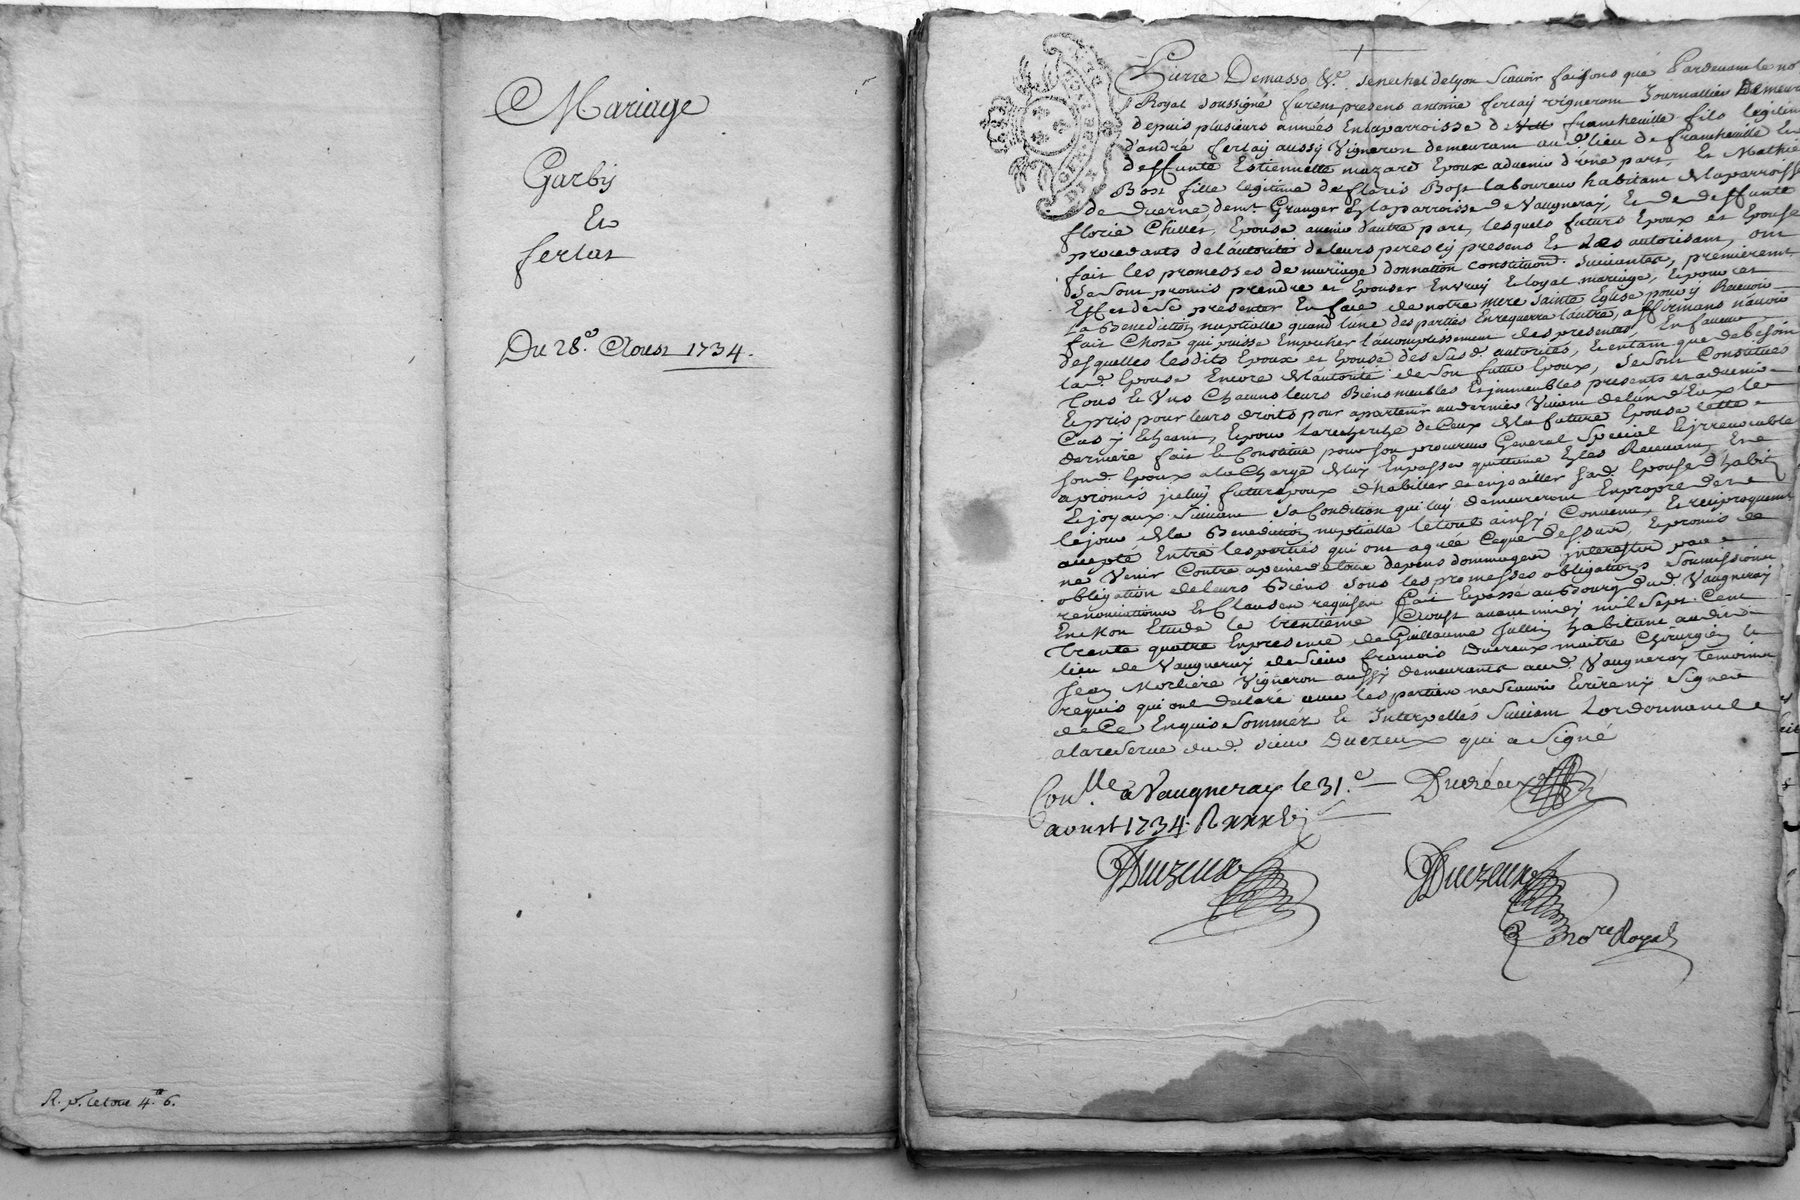 Mariage
Garbij
Et
ferlat
Du 28.e Aoust 1734.
R. p. le tout 4.tt 6.
Pierre Demasso &c. senechal de lyon scavoir faisons que Pardevant le no
Royal soussigné furent presens antoine ferlaÿ vigneron Journallier Demeur
depuis plusieurs années En la parroisse de francheville fils legitim
d'andré ferlaÿ aussy Vigneron demeurant aud. lieu de francheville Et
deffunte Estiennette mazard Epoux advenir d'une part, Et Mathie
Bost fille legitime de floris Bost laboureur habitant En la parroisse
de Duerne, demt. Granger En la parroisse de Vaugneraÿ, Et de deffunte
florie Chillet, Epouse avenir d'autre part, lesquels futurs Epoux et Epouse
procedants de l'autorité de leurs peres cÿ presens Et Les autorisant, ont
fait les promesses de mariage donnation constitution Suivantes, premierement
Se sont promis prendre et Epouser En vraÿ & loyal mariage, & pour cet
Effet de Se presenter En face de notre mere Sainte Eglise pour ÿ Recevoir
La Benediction nuptialle quand l'une des parties En requerra l'autre, affirmans n'avoir
fait Chose qui puisse Empecher l'accomplissement des presentes, En faveur
desquelles lesdits Epoux et Epouse des Susd. autorités, Et entant que de besoin
lad. Epouse Encore de l'autorité de Son futur Epoux, Se Sont Constitués
Tous Et Uns Chacuns leurs Biens meubles Et immeubles presents et advenir
Et pris pour leurs droits pour apartenir au dernier Vivant de l'un d'Eux le
Cas ÿ Echeant, Et pour La recherche de Ceux de la future Epouse Cette
derniere fait Et Constitue pour Son procureur General Special Et irrevocable
Sond. Epoux a la Charge de luÿ En passer quittance En les Recevant, Et a
a promis iceluÿ futur epoux d'habiller et enjoailler Sad. Epouse d'habits
Et joyaux Suivant Sa Condition qui luÿ demeureront En propre dez
le jour de la Benediction nuptialle le tout ainsÿ Convenu, Et reciproquement
accepté Entre les parties qui ont agréé Ce que dessus, Et promis de
ne Venir Contre a peine de tous depens dommages interests par
obligation de leurs Biens sous les promesses obligations Soumissions
renonciations Et Clauses requises fait Et passé au Bourg dud. Vaugneraÿ
En Mon Etude le trentieme Aoust avant midÿ mil Sept Cent
Trente quatre En presence de Guillaume Jullin habitant audit
lieu de Vaugneraÿ de Sieur francois Ducreux maitre Chirurgien Et
Jean Morliere Vigneron aussÿ demeurants aud. Vaugneraÿ temoins
requis qui ont declaré avec les parties ne Scavoir Ecrire nÿ Signer
de Ce Enquis Sommés & Interpellés Suivant Lordonnance
a la reserve dud. Sieur Ducreux qui a Signé
Con.lle a Vaugneray le 31.e Ducreux
aoust 1734. R
Ducreux Ducreux
no.re Royal